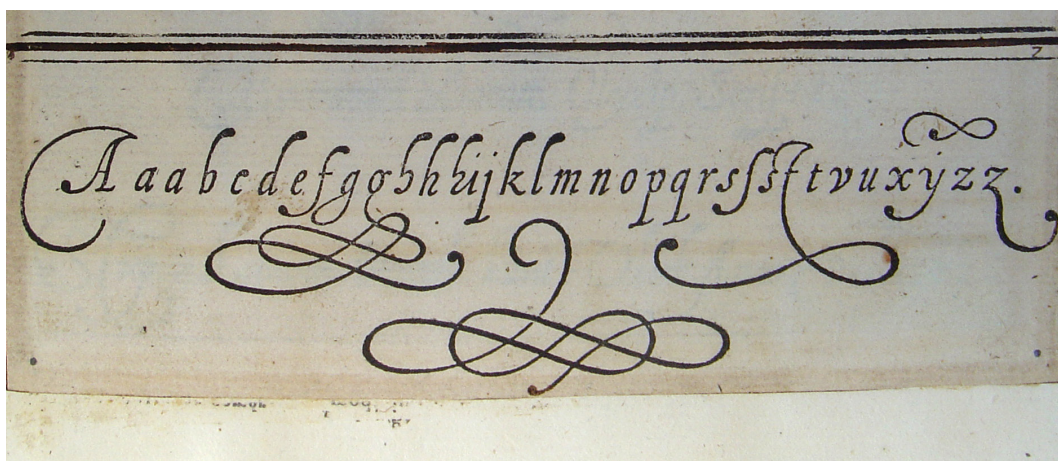 A a a b c d e f g g h h h i j k l m n o p q r s ſ s ſt t v u x y z z .